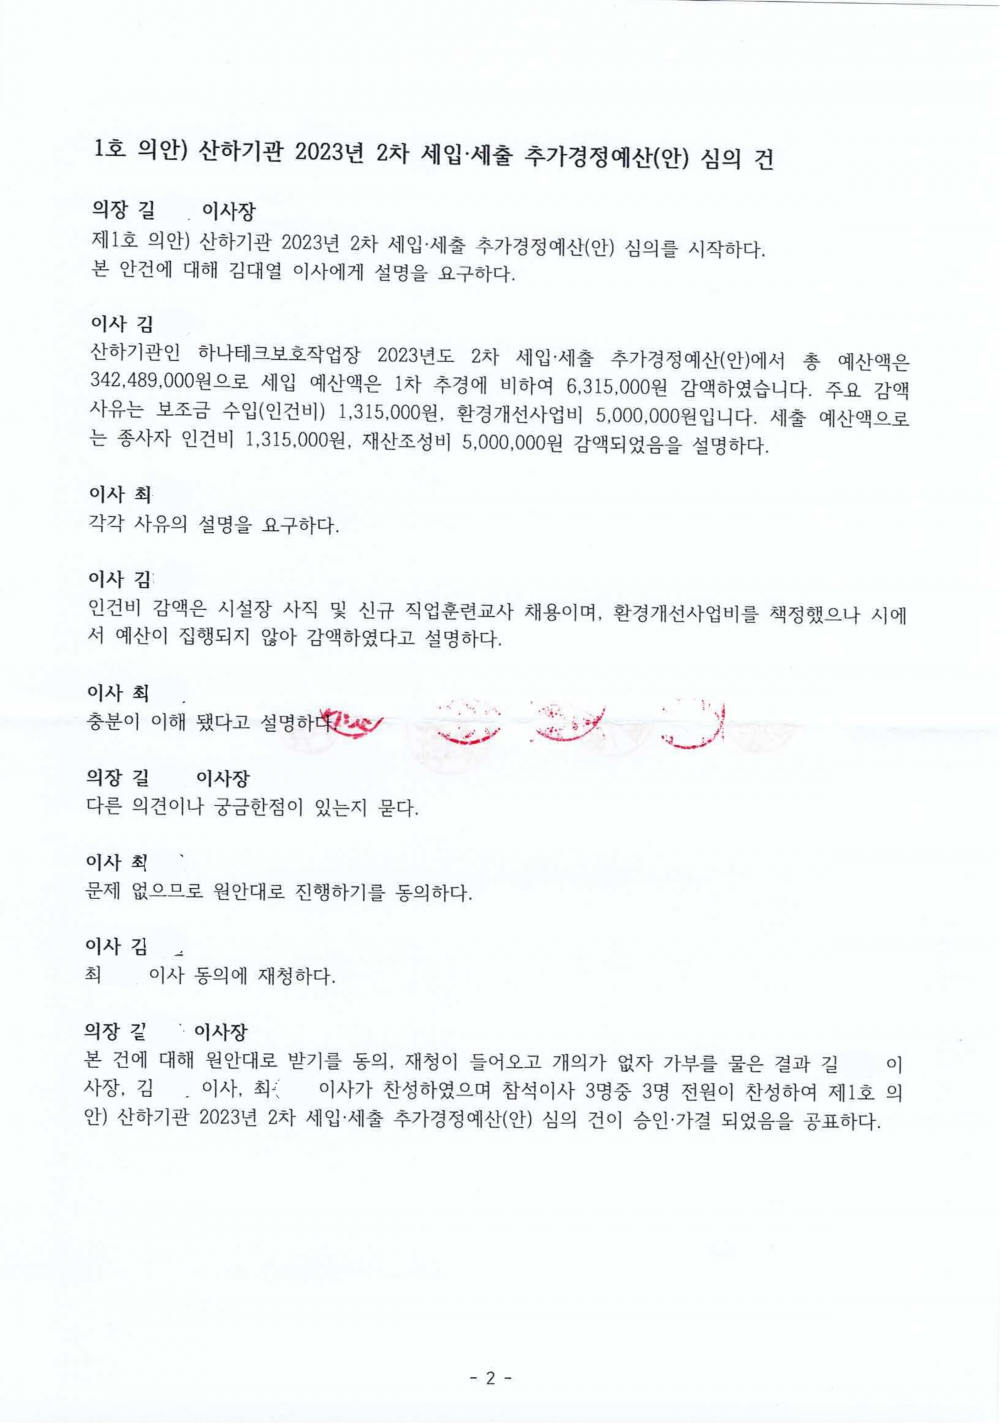 1호 의안) 산하기관 2023년 2차 세입·세출 추가경정예산(안) 심의 건
의장 길 이사장
제1호 의안) 산하기관 2023년 2차 세입·세출 추가경정예산(안) 심의를 시작하다.
본 안건에 대해 김대열 이사에게 설명을 요구하다.
이사 김
산하기관인 하나테크보호작업장 2023년도 2차 세입·세출 추가경정예산(안)에서 총 예산액은
342,489,000원으로 세입 예산액은 1차 추경에 비하여 6,315,000원 감액하였습니다. 주요 감액
사유는 보조금 수입(인건비) 1,315,000원, 환경개선사업비 5,000,000원입니다. 세출 예산액으로
는 종사자 인건비 1,315,000원, 재산조성비 5,000,000원 감액되었음을 설명하다.
이사 최
각각 사유의 설명을 요구하다.
이사 김
인건비 감액은 시설장 사직 및 신규 직업훈련교사 채용이며, 환경개선사업비를 책정했으나 시에
서 예산이 집행되지 않아 감액하였다고 설명하다.
이사 최
충분이 이해 됐다고 설명하다.
의장 길 이사장
다른 의견이나 궁금한점이 있는지 묻다.
이사 최
문제 없으므로 원안대로 진행하기를 동의하다.
이사 김
최 이사 동의에 재청하다.
의장 길 이사장
본 건에 대해 원안대로 받기를 동의, 재청이 들어오고 개의가 없자 가부를 물은 결과 길 이
사장, 김 이사, 최 이사가 찬성하였으며 참석이사 3명중 3명 전원이 찬성하여 제1호 의
안) 산하기관 2023년 2차 세입·세출 추가경정예산(안) 심의 건이 승인·가결 되었음을 공표하다.
- 2 -